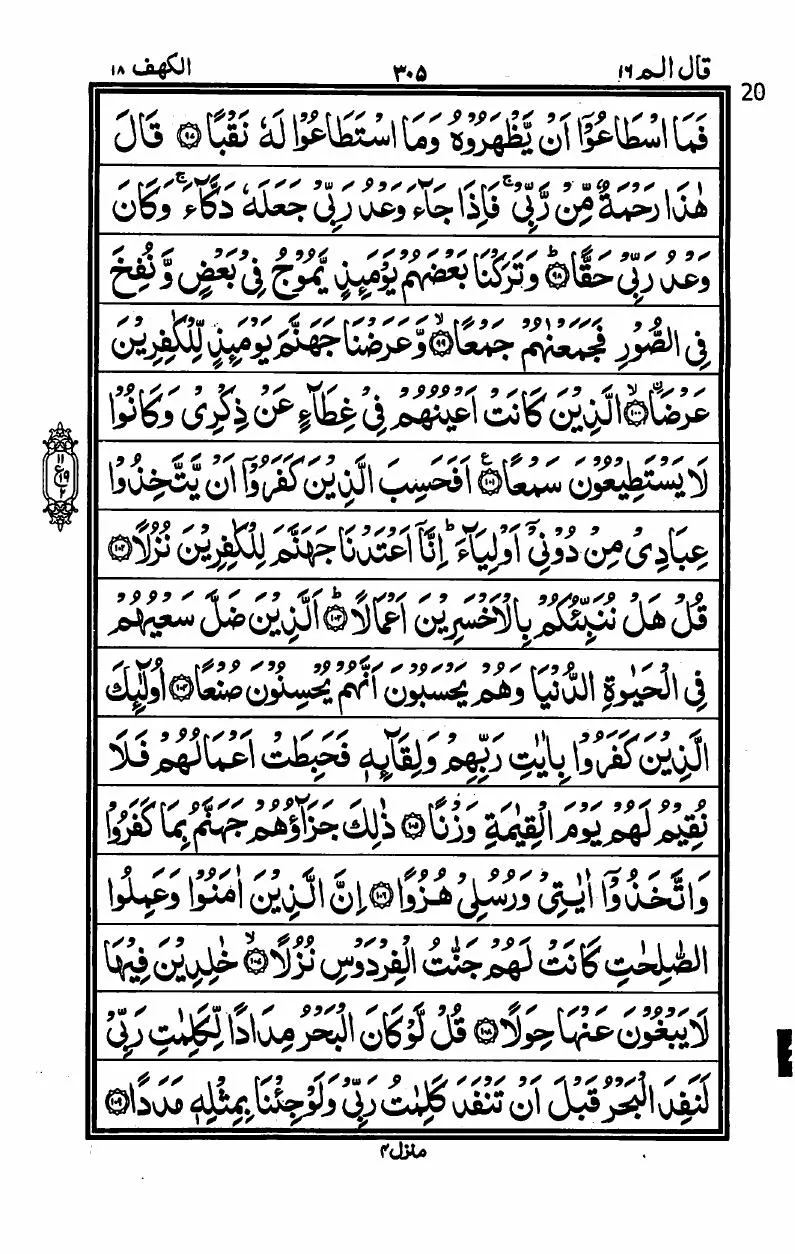 قال الم ١٦ ٣٠٥ الكهف ١٨
20
فَمَا اسْطَاعُوْۤا اَنْ يَّظْهَرُوْهُ وَمَا اسْتَطَاعُوْا لَهٗ نَقْبًا ﴿٩٧﴾ قَالَ
هٰذَا رَحْمَةٌ مِّنْ رَّبِّیْ ۚ فَاِذَا جَآءَ وَعْدُ رَبِّیْ جَعَلَهٗ دَكَّآءَ ۚ وَكَانَ
وَعْدُ رَبِّیْ حَقًّا ؕ﴿٩٨﴾ وَتَرَكْنَا بَعْضَهُمْ يَوْمَئِذٍ يَّمُوْجُ فِیْ بَعْضٍ وَّنُفِخَ
فِی الصُّوْرِ فَجَمَعْنٰهُمْ جَمْعًا ۙ﴿٩٩﴾ وَّعَرَضْنَا جَهَنَّمَ يَوْمَئِذٍ لِّلْكٰفِرِيْنَ
عَرْضًا ۙ﴿١٠٠﴾ الَّذِيْنَ كَانَتْ اَعْيُنُهُمْ فِیْ غِطَآءٍ عَنْ ذِكْرِیْ وَكَانُوْا
لَا يَسْتَطِيْعُوْنَ سَمْعًا ؑ﴿١٠١﴾ اَفَحَسِبَ الَّذِيْنَ كَفَرُوْۤا اَنْ يَّتَّخِذُوْا
١١
ع ١٩
٢
عِبَادِیْ مِنْ دُوْنِیْۤ اَوْلِيَآءَ ؕ اِنَّاۤ اَعْتَدْنَا جَهَنَّمَ لِلْكٰفِرِيْنَ نُزُلًا ﴿١٠٢﴾
قُلْ هَلْ نُنَبِّئُكُمْ بِالْاَخْسَرِيْنَ اَعْمَالًا ؕ﴿١٠٣﴾ اَلَّذِيْنَ ضَلَّ سَعْيُهُمْ
فِی الْحَيٰوةِ الدُّنْيَا وَهُمْ يَحْسَبُوْنَ اَنَّهُمْ يُحْسِنُوْنَ صُنْعًا ﴿١٠٤﴾ اُولٰٓئِكَ
الَّذِيْنَ كَفَرُوْا بِاٰيٰتِ رَبِّهِمْ وَلِقَآئِهٖ فَحَبِطَتْ اَعْمَالُهُمْ فَلَا
نُقِيْمُ لَهُمْ يَوْمَ الْقِيٰمَةِ وَزْنًا ﴿١٠٥﴾ ذٰلِكَ جَزَآؤُهُمْ جَهَنَّمُ بِمَا كَفَرُوْا
وَاتَّخَذُوْۤا اٰيٰتِیْ وَرُسُلِیْ هُزُوًا ﴿١٠٦﴾ اِنَّ الَّذِيْنَ اٰمَنُوْا وَعَمِلُوا
الصّٰلِحٰتِ كَانَتْ لَهُمْ جَنّٰتُ الْفِرْدَوْسِ نُزُلًا ۙ﴿١٠٧﴾ خٰلِدِيْنَ فِيْهَا
لَا يَبْغُوْنَ عَنْهَا حِوَلًا ﴿١٠٨﴾ قُلْ لَّوْ كَانَ الْبَحْرُ مِدَادًا لِّكَلِمٰتِ رَبِّیْ
لَنَفِدَ الْبَحْرُ قَبْلَ اَنْ تَنْفَدَ كَلِمٰتُ رَبِّیْ وَلَوْ جِئْنَا بِمِثْلِهٖ مَدَدًا ﴿١٠٩﴾
منزل ٤